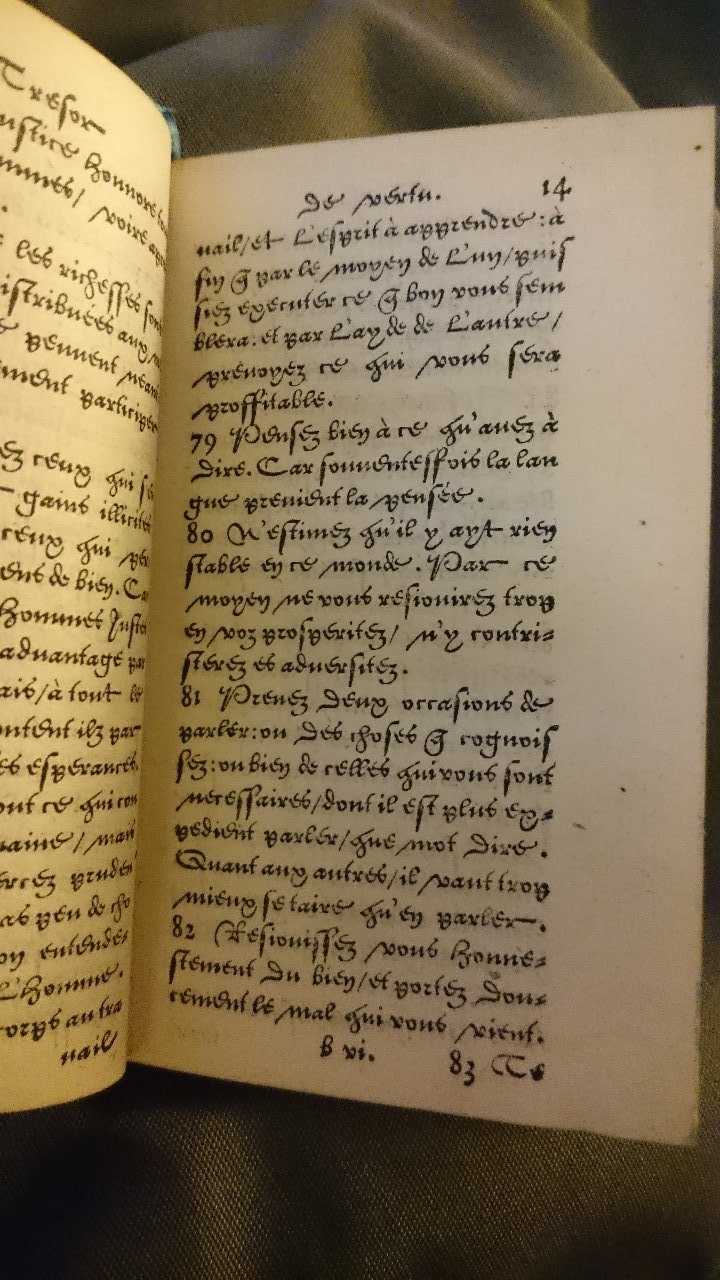 Tresor
Justice honnore
ommes/ voire
les richesses
distribuées aux
peuuent
participer
ceux qui
gains illicites
ceux qui
de bien. Ca
hommes Juste
aduantage par
ais/à tout le
ontent ilz par
es esperances.
ont ce qui con
maine/
ercez pruden
as peu de cho
on entende-
L'homme.
corps au tra
uail
de vertu. 14
uail/et L'esprit à apprendre: à
fin q̃ par le moyen de L'un/puis
siez executer ce q̃ bon vous sem
blera: et par L'ayde de L'autre/
preuoyez ce qui vous sera
proffitable.
79 Pensez bien à ce qu'auez à
dire. Car souuentesfois la lan
gue preuient la pensée.
80 N'estimez qu'il y ayt rien
stable en ce monde. Par ce
moyen ne vous resiouirez trop
en voz prosperitez/ n'y contri-
sterez es aduersitez.
81 Prenez deux occasions de
parler: ou des choses q̃ cognois
sez: ou bien de celles qui vous sont
necessaires/dont il est plus ex-
pedient parler/que mot dire.
Quant aux autres/il vaut trop
mieux se taire qu'en parler.
82 Resiouissez vous honne-
stement du bien/et portez dou-
cement le mal qui vous vient.
b vi. 83 Te